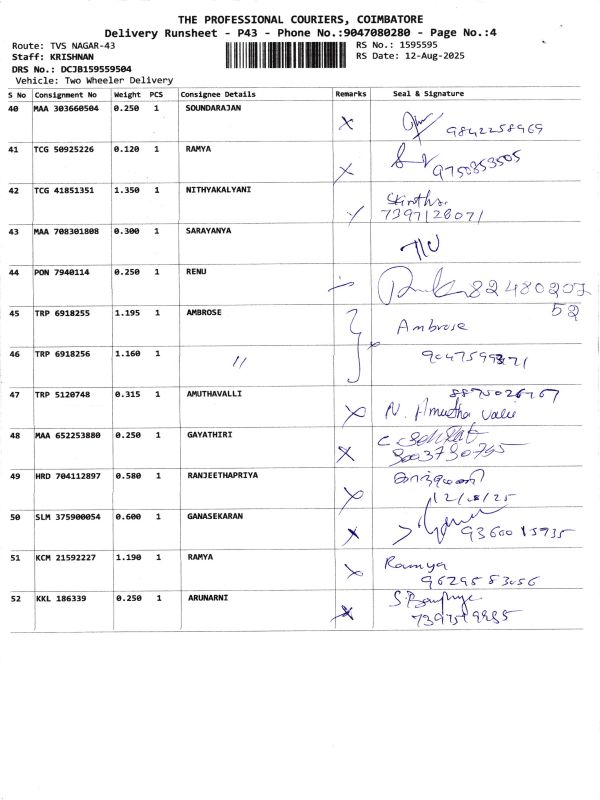 THE PROFESSIONAL COURIERS, COIMBATORE
Delivery Runsheet - P43 - Phone No.:9047080280 - Page No.:4
Route: TVS NAGAR-43 RS No.: 1595595
Staff: KRISHNAN RS Date: 12-Aug-2025
DRS No.: DCJB159559504
Vehicle: Two Wheeler Delivery
S No Consignment No Weight PCS Consignee Details Remarks Seal & Signature
40 MAA 303660504 0.250 1 SOUNDARAJAN
9842258969
41 TCG 50925226 0.120 1 RAMYA
9750853505
42 TCG 41851351 1.350 1 NITHYAKALYANI
7397128071
43 MAA 708301808 0.300 1 SARAYANYA
44 PON 7940114 0.250 1 RENU
82480207
52
45 TRP 6918255 1.195 1 AMBROSE
Ambrose
46 TRP 6918256 1.160 1 //
47 TRP 5120748 0.315 1 AMUTHAVALLI
N. Amutha valli
48 MAA 652253880 0.250 1 GAYATHIRI
49 HRD 704112897 0.580 1 RANJEETHAPRIYA
12/08/25
50 SLM 375900054 0.600 1 GANASEKARAN
9360015935
51 KCM 21592227 1.190 1 RAMYA
Ramya
9629583056
52 KKL 186339 0.250 1 ARUNARNI